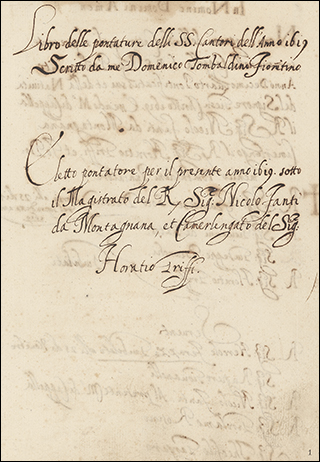 Libro delle pontature delli SS. Cantori dell'Anno 1619
Scritto da me Domenico Tombaldini Fiorentino
Eletto pontatore per il presente anno 1619. sotto
il Magistrato del R. Sig. Nicolo. Fanti
da Montagnana, et Camerlengato del Sig.
Horatio Griffi.
1